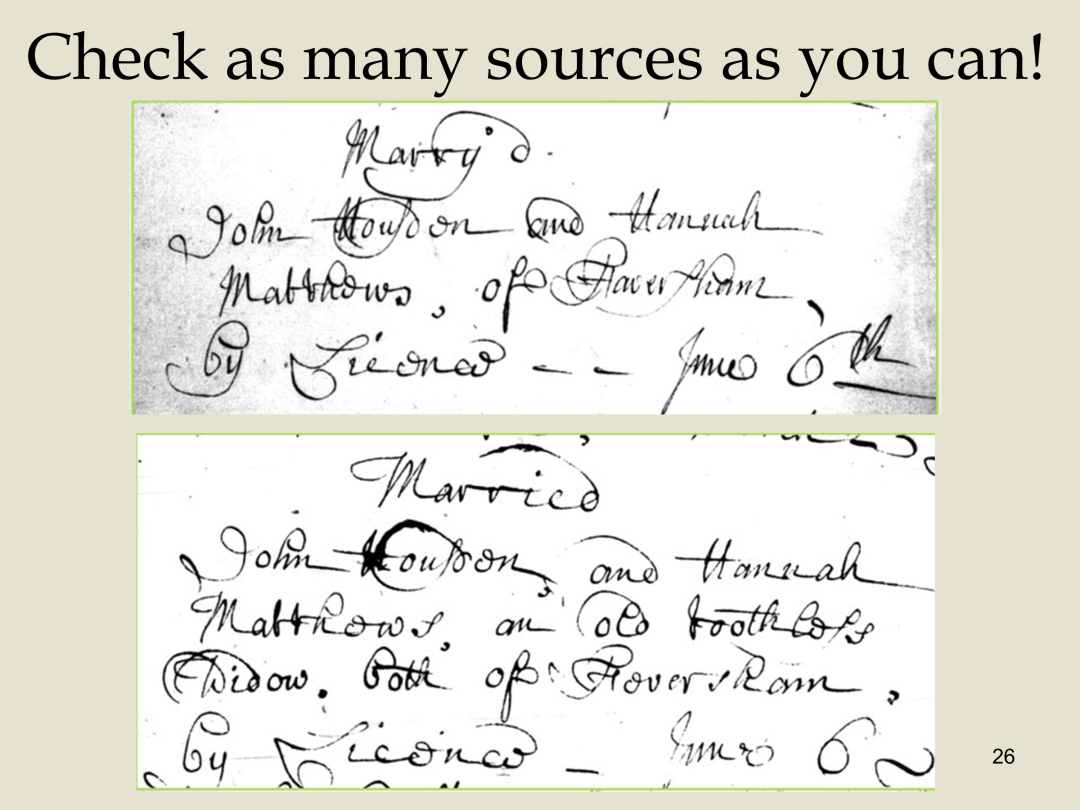 Check as many sources as you can!
Marry'd.
John Housson and Hannah
Matthews, of Faversham,
by Licence – – June 6th
Married
John Housson, and Hannah
Matthews, an old toothless
Widow. both of Faversham,
by Licence – June 6
26